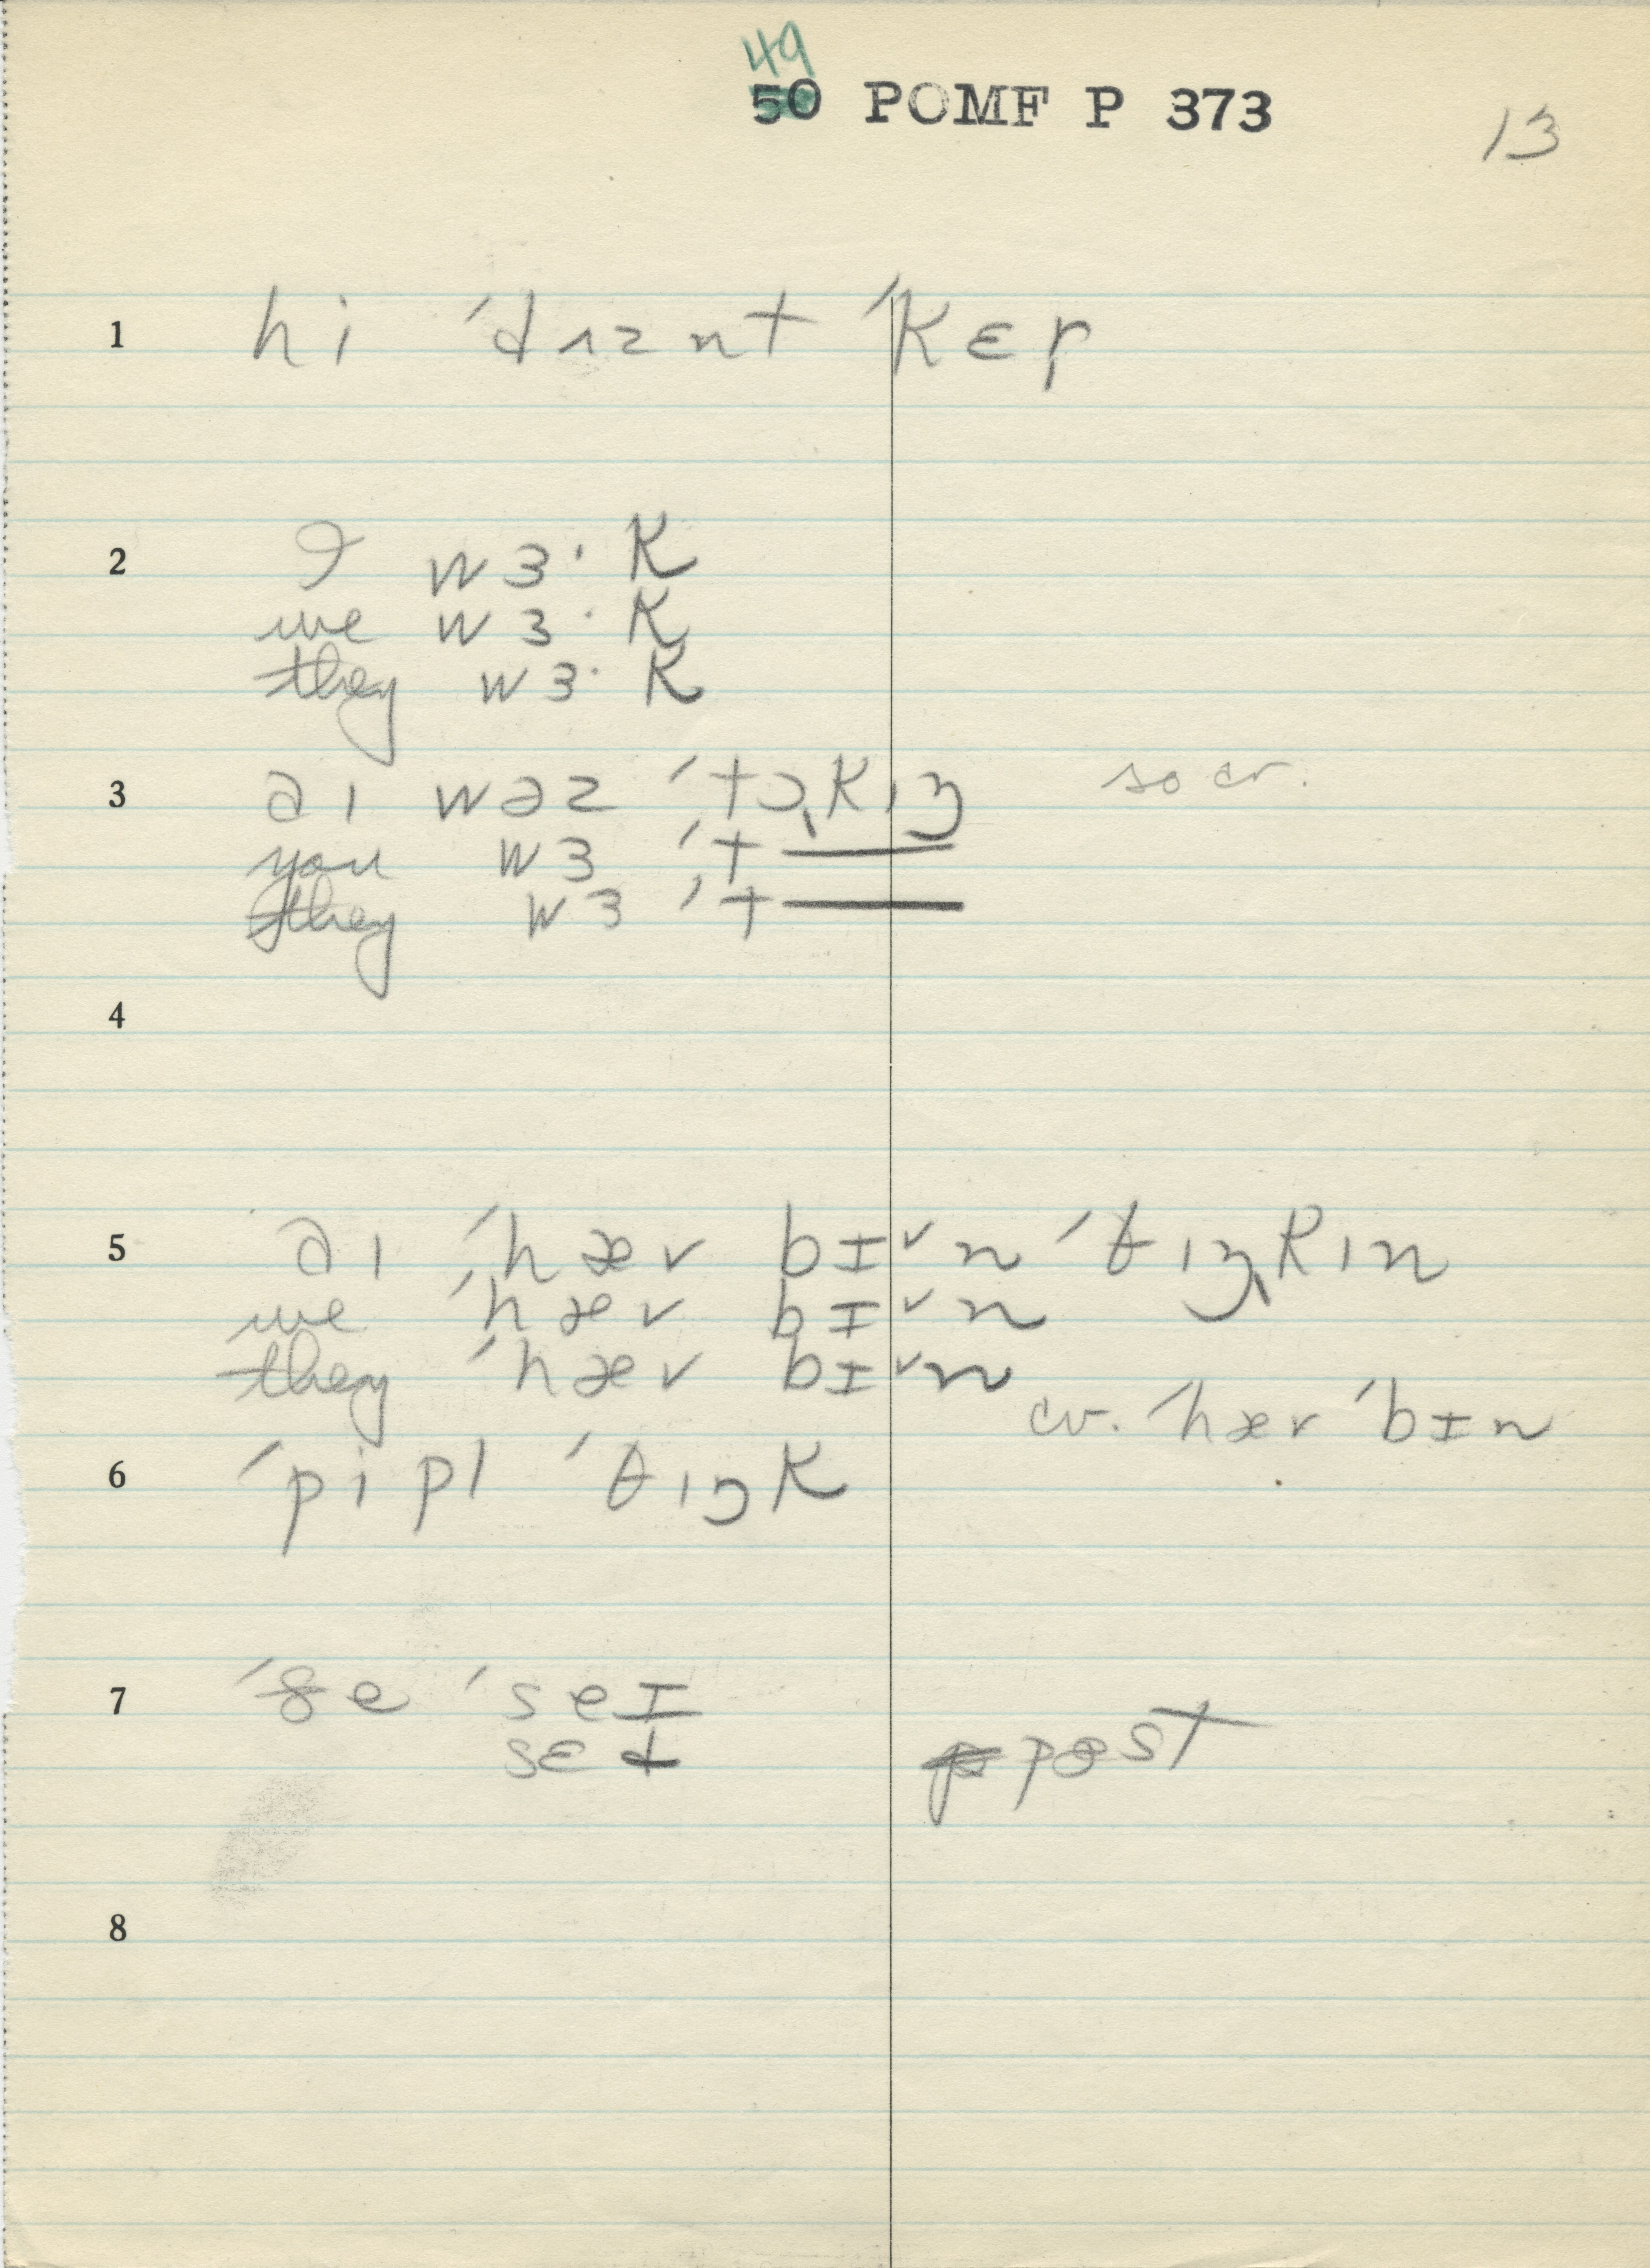 49
50 POMF P 373
13
1 hi ˈdɪznt ˈkɛr
2 I wɜ·k
we wɜ·k
they wɜ·k
3 aɪ wəz ˈtɔˌkɪŋ so cv.
you wɜ ˈt——
they wɜ ˈt——
4
5 aɪ ˈhæv bɪᵛn ˈθɪŋˌkɪn
we ˈhæv bɪᵛn
they ˈhæv bɪᵛn
cv. ˈhæv ˈbɪn
6 ˈpipl ˈθɪŋk
7 ˈðe ˈseɪ
sɛd post
8